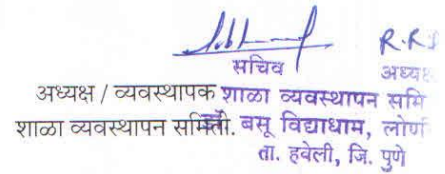 R.R.
सचिव अध्यक्ष
अध्यक्ष / व्यवस्थापक शाळा व्यवस्थापन समि
शाळा व्यवस्थापन समिती. बसू विद्याधाम, लोणी
ता. हवेली, जि. पुणे